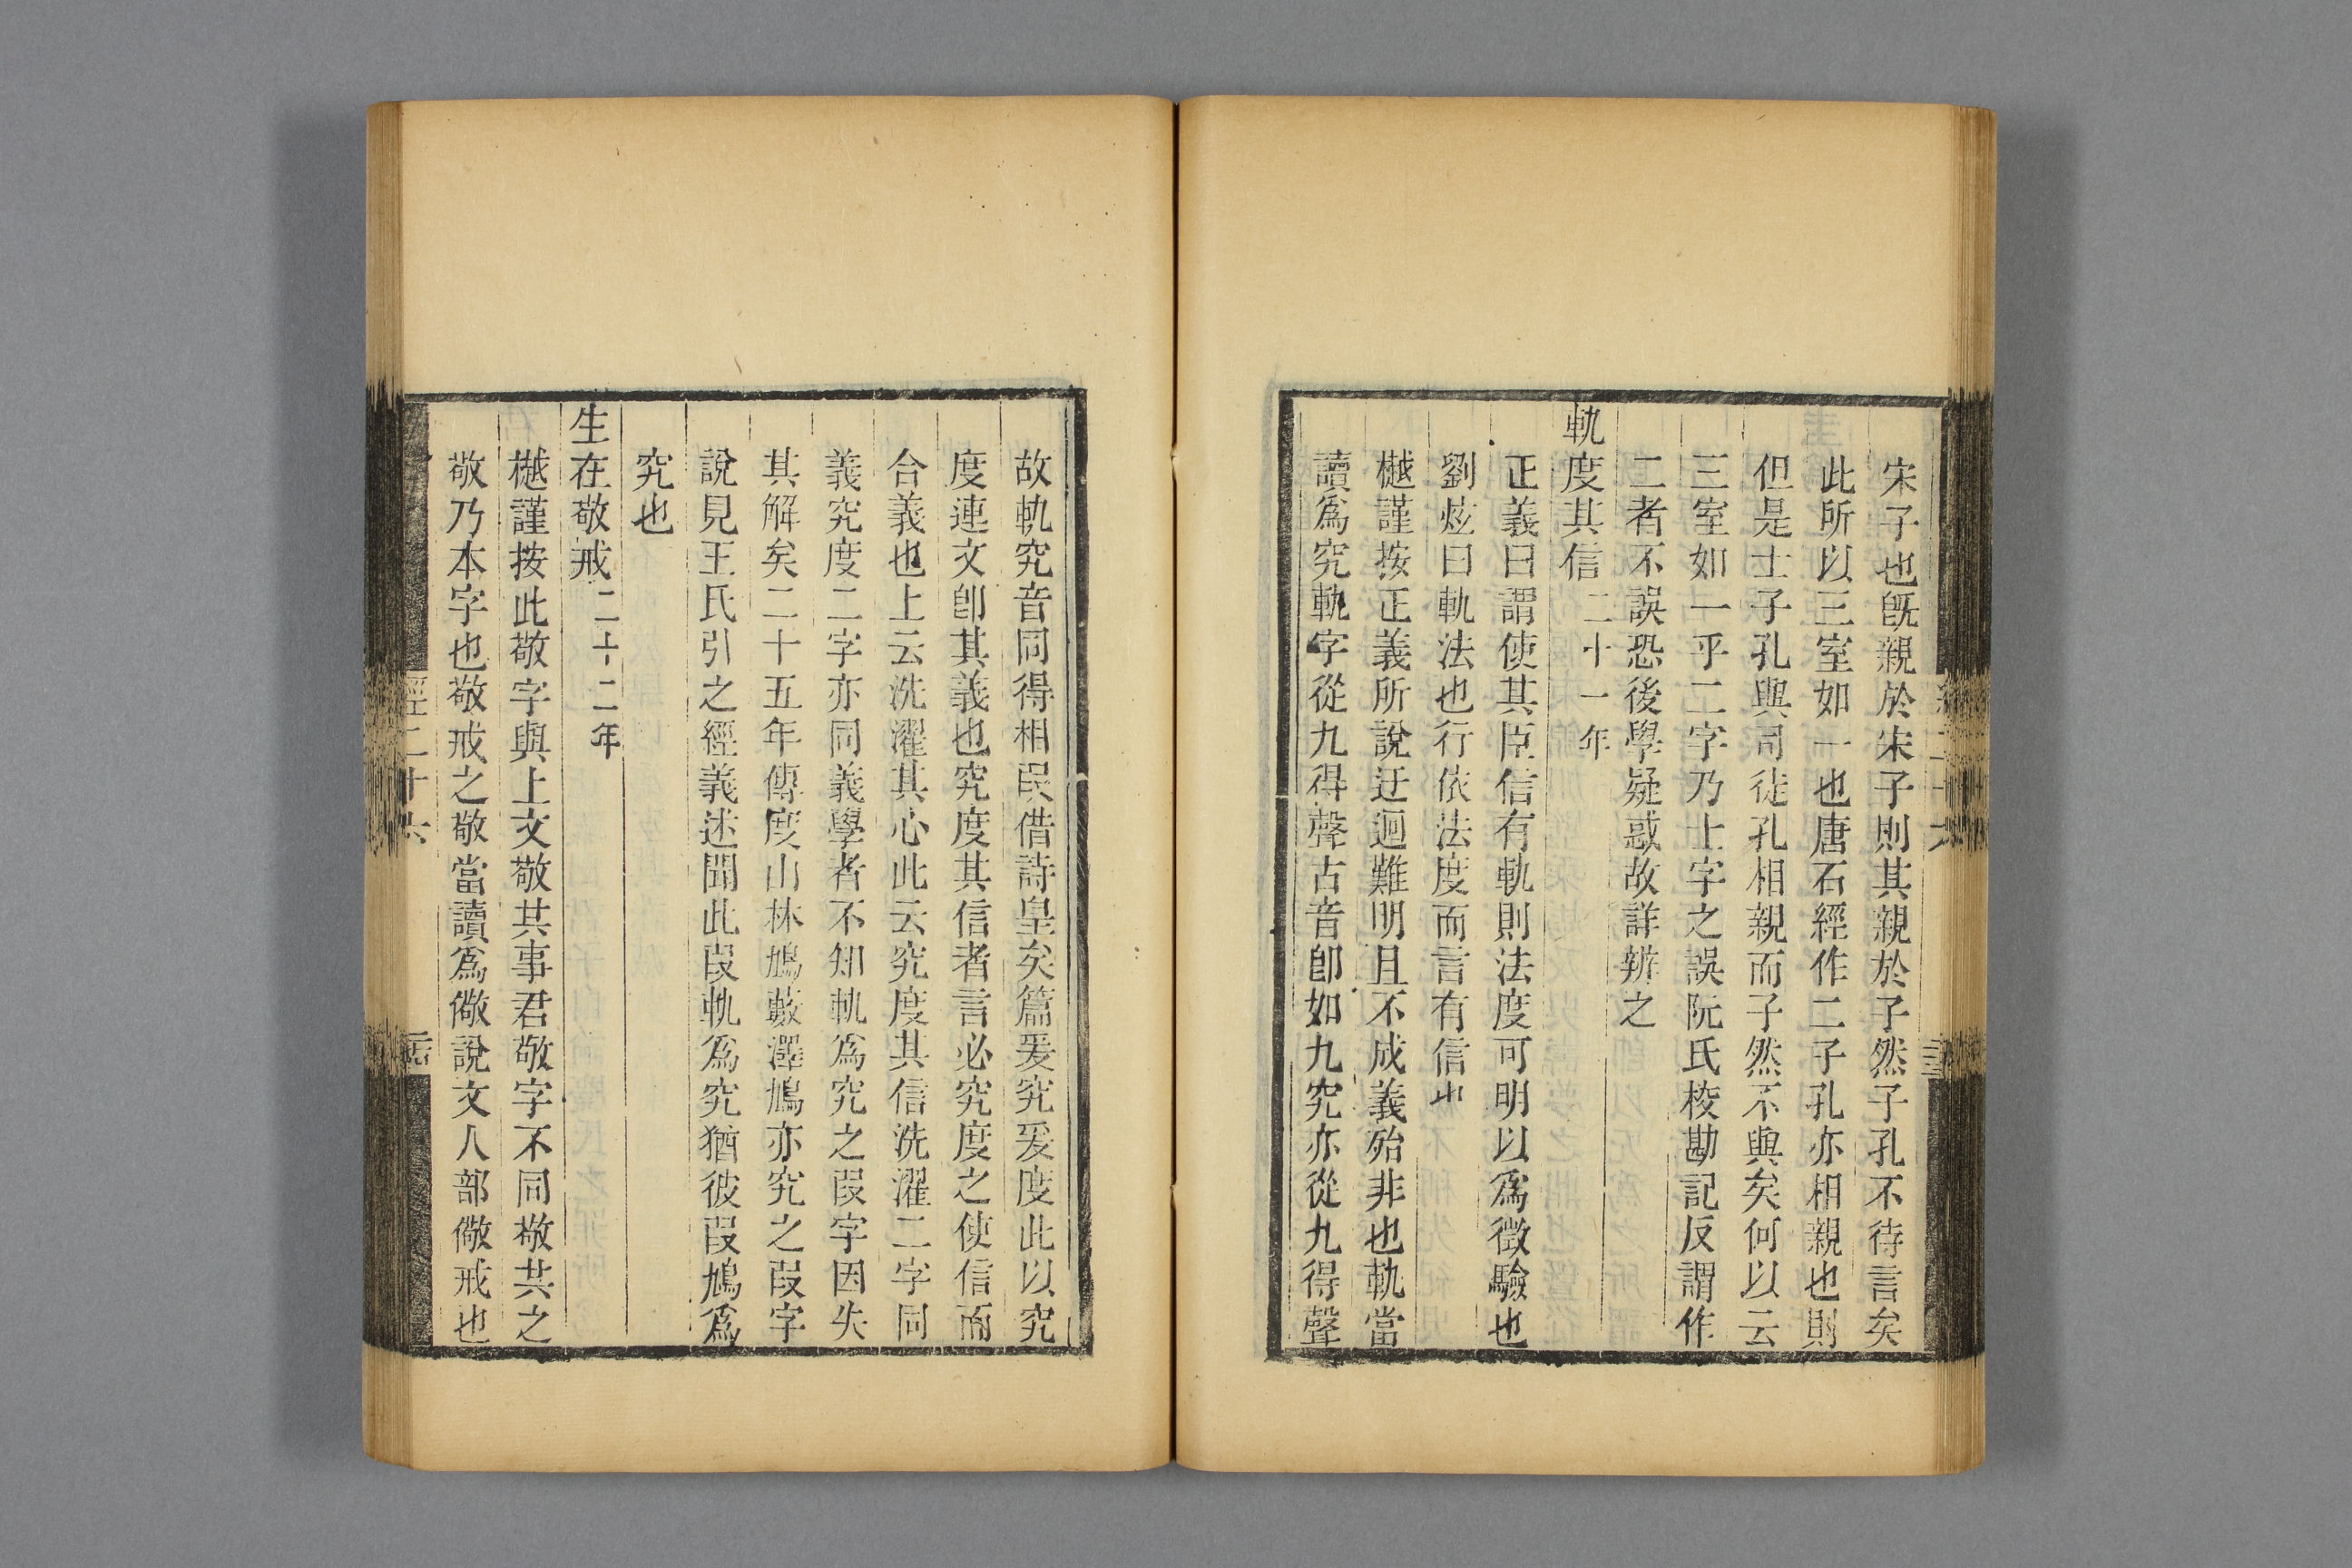 宋子也旣親於宋子則其親於子然子孔不待言矣
此所以三室如一也唐石經作二子孔亦相親也則
但是士子孔與司徒孔相親而子然不與矣何以云
三室如一乎二字乃士字之誤阮氏校勘記反謂作
二者不誤恐後學疑惑故詳辨之
軌度其信二十一年
正義曰謂使其臣信有軌則法度可明以爲徵驗也
劉炫曰軌法也行依法度而言有信也
樾謹按正義所說迂迴難明且不成義殆非也軌當
讀爲究軌字從九得聲古音卽如九究亦從九得聲
故軌究音同得相叚借詩皇矣篇爰究爰度此以究
度連文卽其義也究度其信者言必究度之使信而
合義也上云洗濯其心此云究度其信洗濯二字同
義究度二字亦同義學者不知軌爲究之叚字因失
其解矣二十五年傳度山林鳩藪澤鳩亦究之叚字
說見王氏引之經義述聞此叚軌爲究猶彼叚鳩爲
究也
生在敬戒二十二年
樾謹按此敬字與上文敬共事君敬字不同敬共之
敬乃本字也敬戒之敬當讀爲儆說文人部儆戒也
經二十六